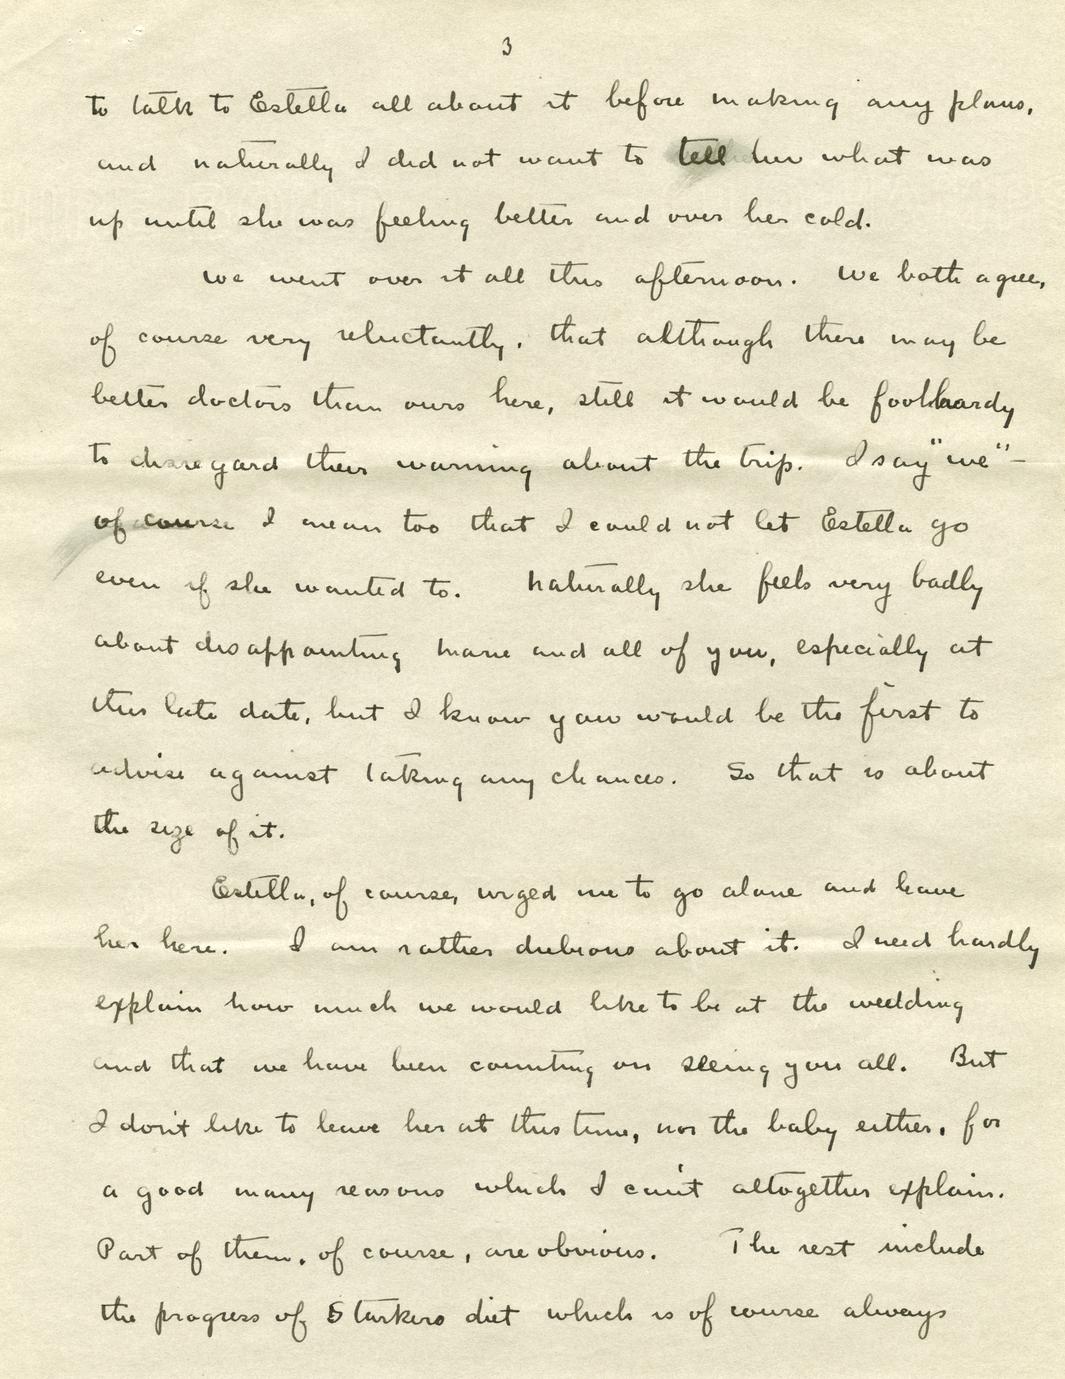 3
to talk to Estella all about it before making any plans,
and naturally I did not want to tell her what was
up until she was feeling better and over her cold.
We went over it all this afternoon. We both agree,
of course very reluctantly, that although there may be
better doctors than ours here, still it would be foolhardy
to disregard their warning about the trip. I say "we" —
of course I mean too that I could not let Estella go
even if she wanted to. Naturally she feels very badly
about disappointing Marie and all of you, especially at
this late date, but I know you would be the first to
advise against taking any chances. So that is about
the size of it.
Estella, of course, urged me to go alone and leave
her here. I am rather dubious about it. I need hardly
explain how much we would like to be at the wedding
and that we have been counting on seeing you all. But
I don't like to leave her at this time, nor the baby either, for
a good many reasons which I can't altogether explain.
Part of them, of course, are obvious. The rest include
the progress of Starkers diet which is of course always